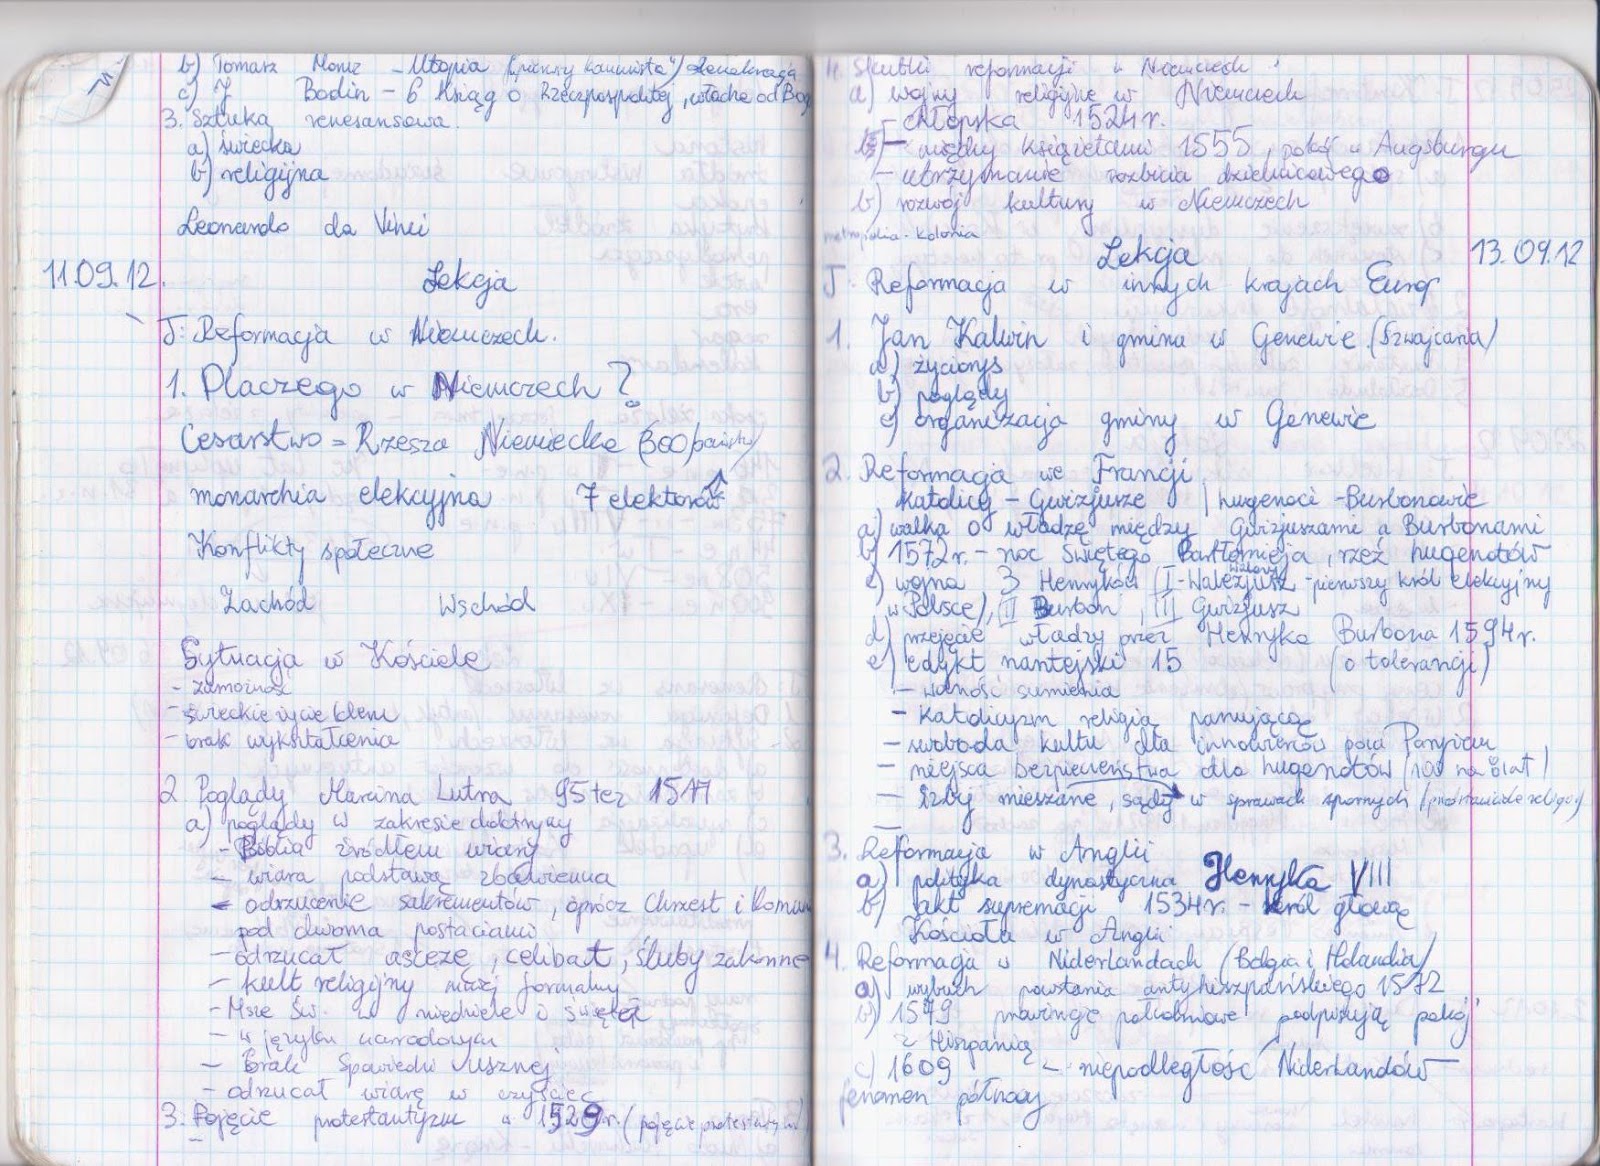 b) Tomasz Morus – Utopia ("pierwszy komunista")
c) J Bodin – 6 Ksiąg o Rzeczpospolitej, władza od Bog
3. Sztuka renesansowa.
a) świecka
b) religijna
Leonardo da Vinci
11.09.12. Lekcja
T: Reformacja w Niemczech.
1. Dlaczego w Niemczech?
Cesarstwo = Rzesza Niemiecka (300 państw)
monarchia elekcyjna 7 elektorów
Konflikty społeczne
Zachód Wschód
Sytuacja w Kościele
- zamożność
- świeckie życie kleru
- brak wykształcenia
2 Poglądy Marcina Lutra 95 tez 1517
a) poglądy w zakresie doktryny
- Biblia źródłem wiary
- wiara podstawą zbawienia
- odrzucenie sakramentów, oprócz Chrzest i Komun
pod dwoma postaciami
- odrzucał ascezę, celibat, śluby zakonne
- kult religijny mniej formalny
- Msze Św. w niedziele i święta
- w języku narodowym
- brak Spowiedzi Usznej
- odrzucał wiarę w czyściec
3. Pojęcie protestantyzm w 1529r. (pojęcie protestantyzm)
4. Skutki reformacji w Niemczech.
a) wojny religijne w Niemczech
- chłopska 1524r.
- między książętami 1555, pokój w Augsburgu
- utrzymanie rozbicia dzielnicowego
b) rozwój kultury w Niemczech
metropolia - kolonia
Lekcja 13.09.12
T: Reformacja w innych krajach Europ
1. Jan Kalwin i gmina w Genewie. (Szwajcaria)
a) życiorys
b) poglądy
c) organizacja gminy w Genewie
2. Reformacja we Francji
katolicy – Gwizjusze | hugenoci - Burbonowie
a) walka o władzę między Gwizjuszami a Burbonami
b) 1572r. – noc Świętego Bartłomieja, rzeź hugenotów
c) wojna 3 Henryków (I - Walezjusz Walezy - pierwszy król elekcyjny
w Polsce), II Burbon, III Gwizjusz
d) przejęcie władzy przez Henryka Burbona 1594r.
e) edykt nantejski 15 (o tolerancji)
- wolność sumienia
- katolicyzm religią panującą
- swoboda kultu dla innowierców poza Paryżem
- miejsca bezpieczeństwa dla hugenotów (100 na 8 lat)
- Izby mieszane, sądy w sprawach spornych
3. Reformacja w Anglii
a) polityka dynastyczna Henryka VIII
b) akt supremacji 1534r. – król głową
Kościoła w Anglii
4. Reformacja w Niderlandach (Belgia i Holandia)
a) wybuch powstania antyhiszpańskiego 1572
b) 1579 prowincje południowe podpisują pokój
z Hiszpanią
c) 1609 – niepodległość Niderlandów
fenomen północy